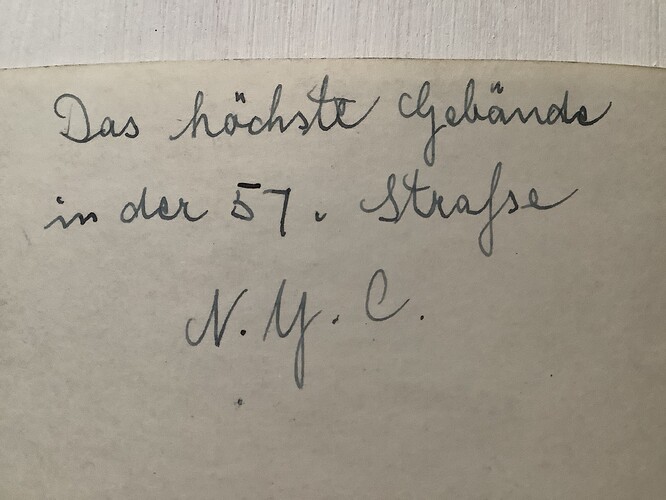 Das höchste Gebäude
in der 57. Straſse
N. Y. C.